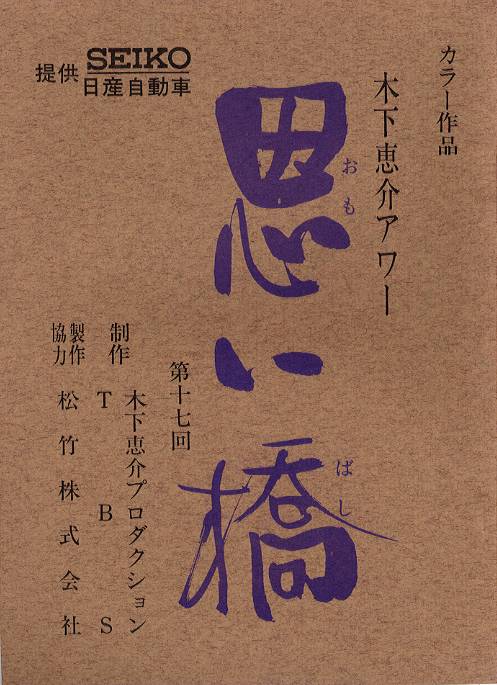 カラー作品
木下恵介アワー
提供 SEIKO
日産自動車
思い橋
おも
ばし
第十七回
制作
木下恵介プロダクション
TBS
製作協力
松竹株式会社